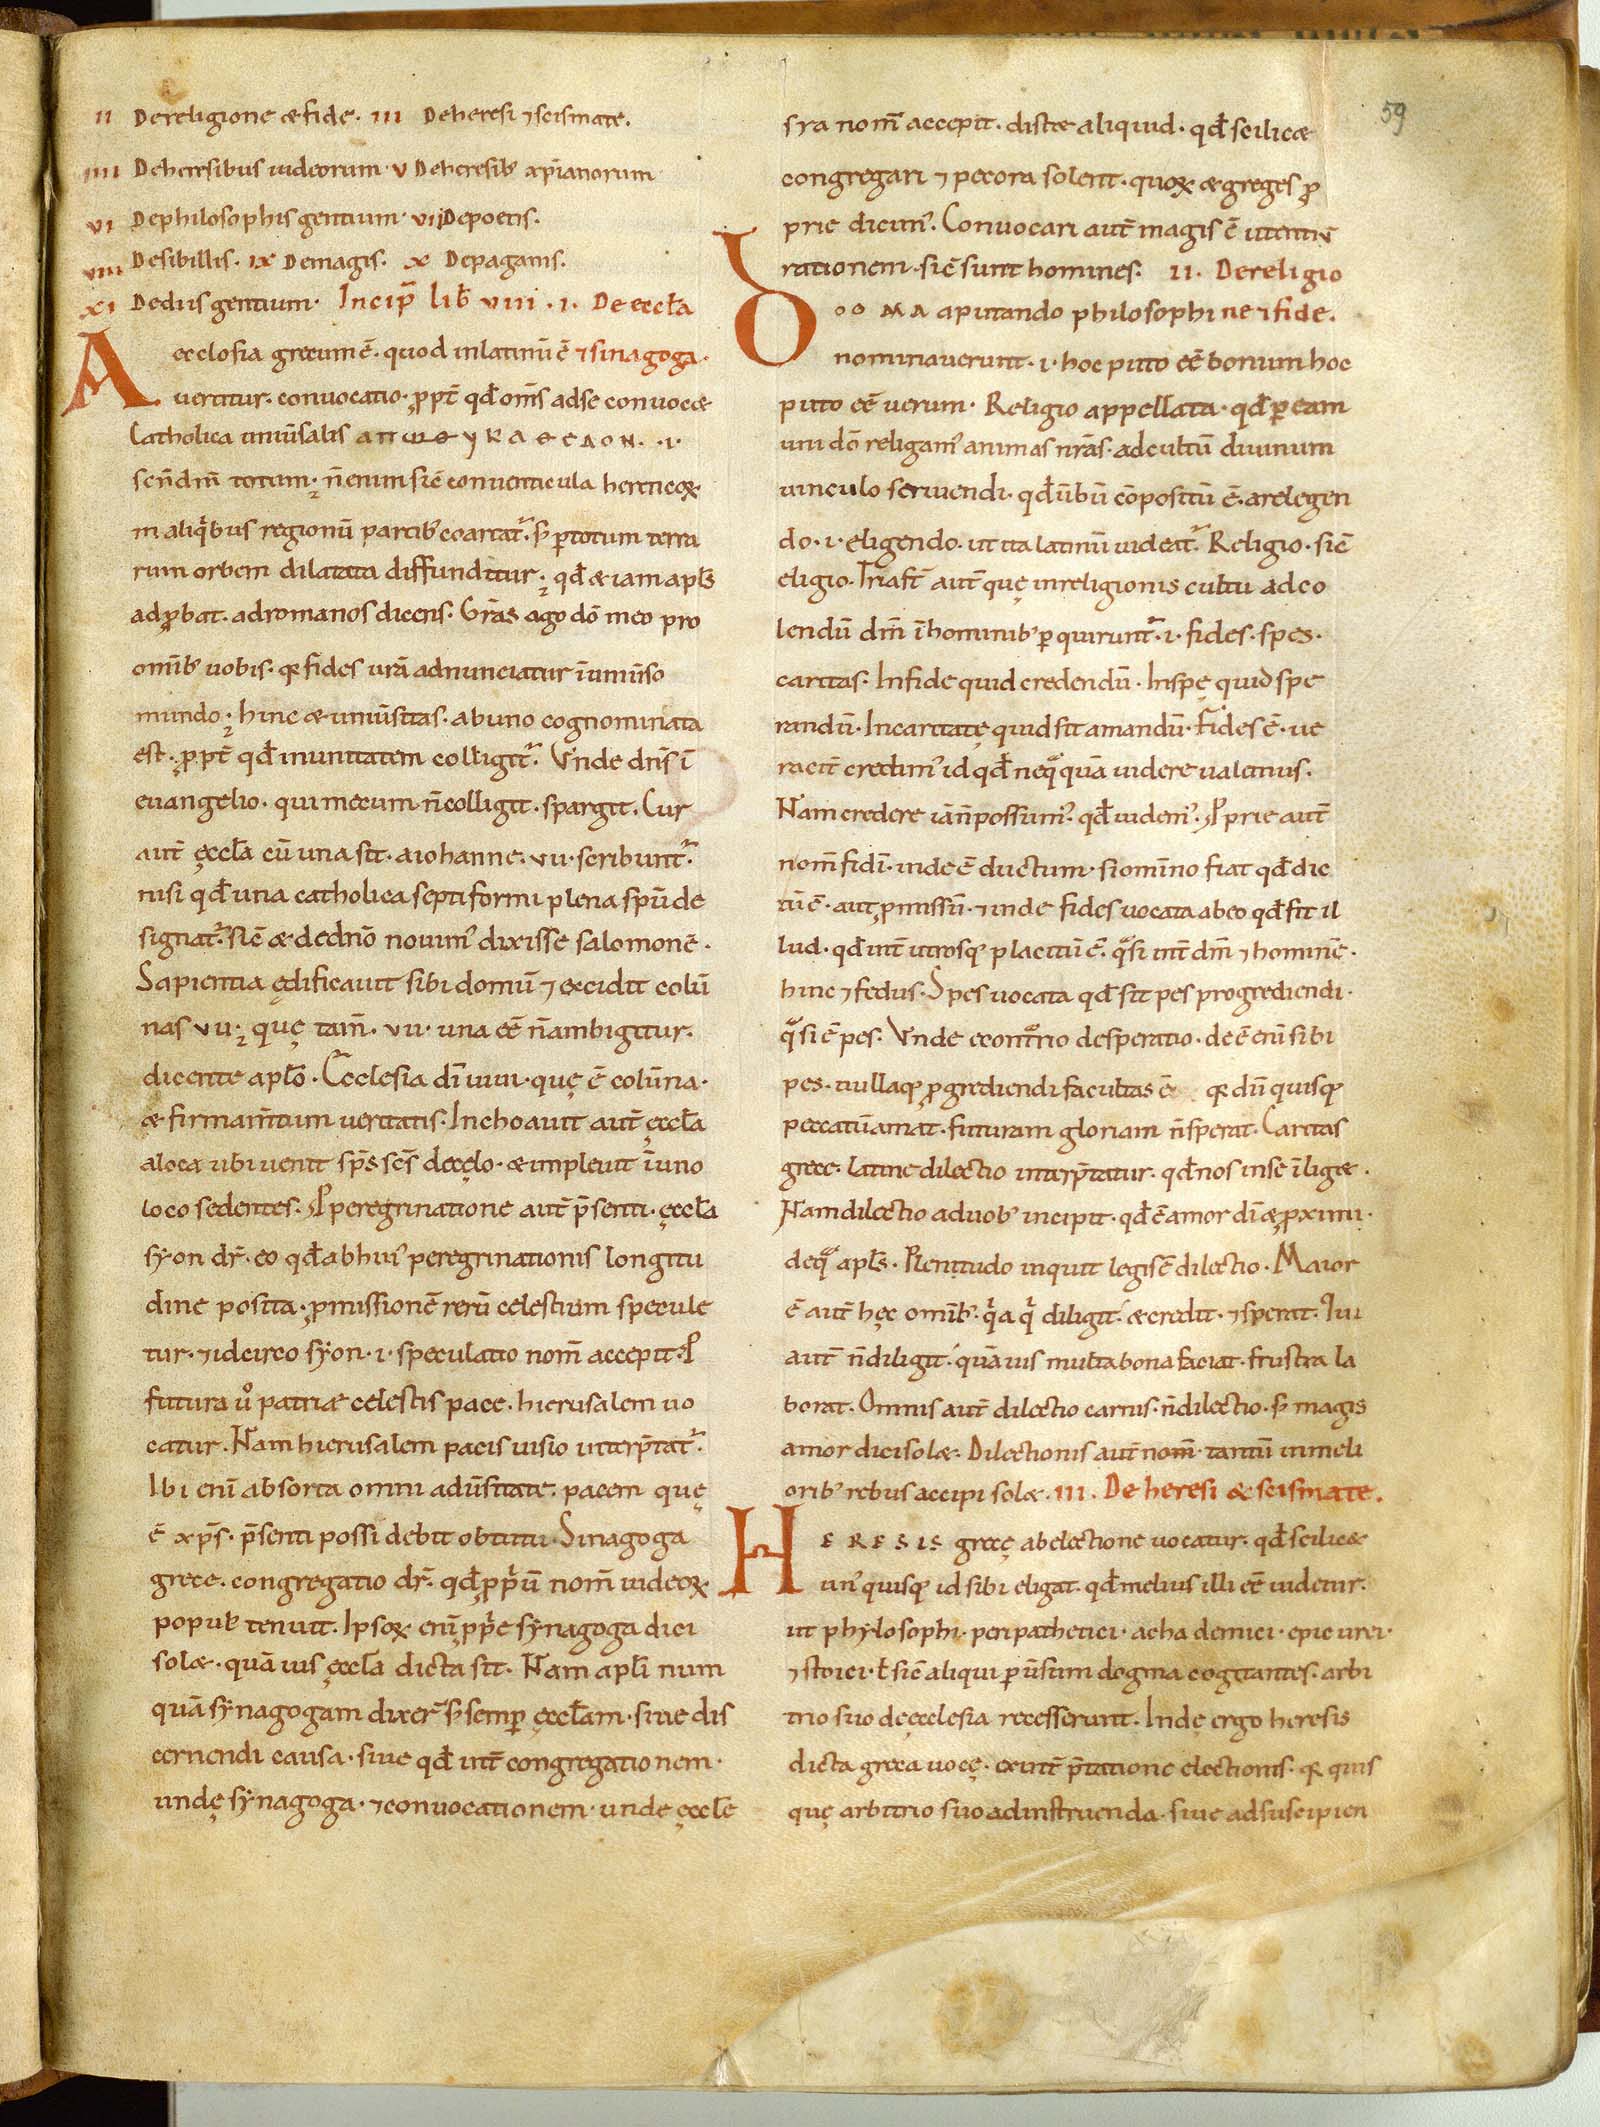 59
II De religione & fide. III De heresi ⁊ scismate.
IIII De heresibus iudeorum. V De heresib; xp̄ianorum
VI De philosophis gentium. VII De poetis.
VIII De sibillis. IX De magis. X De paganis.
XI De diis gentium. Incip̄ lib̄ VIII. I. De eccl̄a
A ecclesia grecum ē. quod in latinū ē ⁊ sinagoga.
uertitur. conuocatio. ꝓpt̄ qd̄ om̄s ad se conuoc&
Catholica uniūsalis
scn̄dm̄ totum. n̄ enim sic̄ conuenticula hereticoꝝ
in aliq̇bus regionū partib; coartat᷑. s; ꝑ totum terra
rum orbem dilatata diffunditur. qd̄ & iam apl̄s
adꝓbat. ad romanos dicens. Grās ago dō meo pro
omīb; uobis. q; fides ur̄a adnunciatur ī uniūso
mundo. hinc & uniūsitas. ab uno cognominata
est. ꝓpt̄ qd̄ in unitatem colligit᷑. Vnde dn̄s ī
euangelio. qui mecum n̄ colligit. spargit. Cur
aut̄ ęccl̄a cū una sit. a iohanne. VII. scribunt᷑.
nisi qd̄ una catholica septiformi plena spū de
signat᷑. sic̄ & de dn̄o nouim᷒ dixisse salomonē.
Sapientia ędificauit sibi domū ⁊ excidit colū
nas VII. quę tam̄. VII. una eē n̄ ambigitur.
dicente apl̄o. Ecclesia dī uiui. quę ē colūna.
& firmam̄tum ueritatis. Inchoauit aut̄ ęccl̄a
a loc& ubi uenit sp̄s sc̄s de cęlo. & impleuit ī uno
loco sedentes. ꝓ peregrinatione aut̄ p̄senti. ęccl̄a
syon dr̄. eo qd̄ ab hui᷒ peregrinationis longitu
dine posita. ꝓmissionē rerū celestium specule
tur. ⁊ idcirco syon. i. speculatio nom̄ accepit. ꝓ
futura ů patriae celestis pace. hierusalem uo
catur. Nam hierusalem pacis uisio interp̄tat᷑.
Ibi enī absorta omni adūsitate. pacem quę
ē xp̄s. p̄senti possidebit obtutu. Sinagoga
grece. congregatio dr̄. qd̄ ꝓpr̍ū nom̄ iudeoꝝ
popul᷒ tenuit. Ipsoꝝ enī ꝓpr̍e synagoga dici
sol&. quāuis ęccl̄a dicta sit. Nam apl̄i num
quā synagogam dixer̄ s; semꝑ ęccl̄am. siue dis
cernendi causa. siue qd̄ int̄ congregationem.
undę synagoga. ⁊ conuocationem. unde ęccle
sya nom̄ accepit. dist& aliquid. qd̄ scilic&
congregari ⁊ pecora solent. quoꝝ & greges ꝓ
prie dicim᷒. Conuocari aut̄ magis ē utentiū
rationem. sic̄ sunt homines. II. De religio
D OOMA a putando philosophi ne ⁊ fide.
nominauerunt. i. hoc puto eē bonum hoc
puto eē uerum. Religio appellata. qd̄ ꝑ eam
uni dō religam᷒ animas nr̄as. ad cultū diuinum
uinculo seruiendi. qd̄ ūbū cōpositū ē. a relegen
do. i. eligendo. ut ita latinū uideat᷑. Religio. sic̄
eligio. Tria st̄ aut̄ quę in religionis cultu ad co
lendū dm̄ ī hominib; ꝑquirunt᷑. i. fides. spes.
caritas. In fide quid credendū. In spę quid spe
randū. In caritatę quid sit amandū. Fides ē. ue
racit̄ credim᷒ id qd̄ neq̄quā uidere ualemus.
Nam credere iā n̄ possum᷒. qd̄ uidem᷒. ꝓprie aut̄
nom̄ fidī. inde ē ductum. si omīno fiat qd̄ dic
tū ē. aut ꝓmissū. ⁊ inde fides uocata ab eo qd̄ fit il
lud. qd̄ int̄ utrosq; placitū ē. q̄si int̄ dm̄ ⁊ hominē.
hinc ⁊ fedus. Spes uocata qd̄ sit pes progrediendi.
q̄si ē pes. Vnde econtrārio desperatio. deē enī sibi
pes. nullaq; ꝓgrediendi facultas ē q; dū quisq;
peccatū amat. futuram gloriam n̄ sperat. Caritas
grece. latine dilectio interp̄tatur. qd̄ nos in se īlig&.
Nam dilectio a duob; incipit. qd̄ ē amor dī & ꝓximi.
de q̄ apl̄s. Plenitudo inquit legis ē dilectio. Maior
ē aut̄ hęc omīb;. q̍a q̍ diligit. & credit. ⁊ sperat. Qui
aut̄ n̄ diligit. quāuis multa bona faciat. frustra la
borat. Omnis aut̄ dilectio carnis. n̄ dilectio. s; magis
amor dici sol&. Dilectionis aut̄ nom̄. tantū in meli
orib; rebus accipi sol&. III. De heresi & scismate.
HERESIS grecę ab electione uocatur. qd̄ scilic&
un᷒quisq; id sibi eligat. qd̄ melius illi eē uidetur.
ut phylosophi. peripathetici. achademici. epicurei.
⁊ stoici. ł sic̄ aliqui ꝑūsum dogma cogitantes. arbi
trio suo de ęcclesia recesserunt. Indę ergo heresis
dicta greca uocę. ex int̄p̄tatione electionis. q; quis
quę arbitrio suo ad instruenda. siue ad suscipien